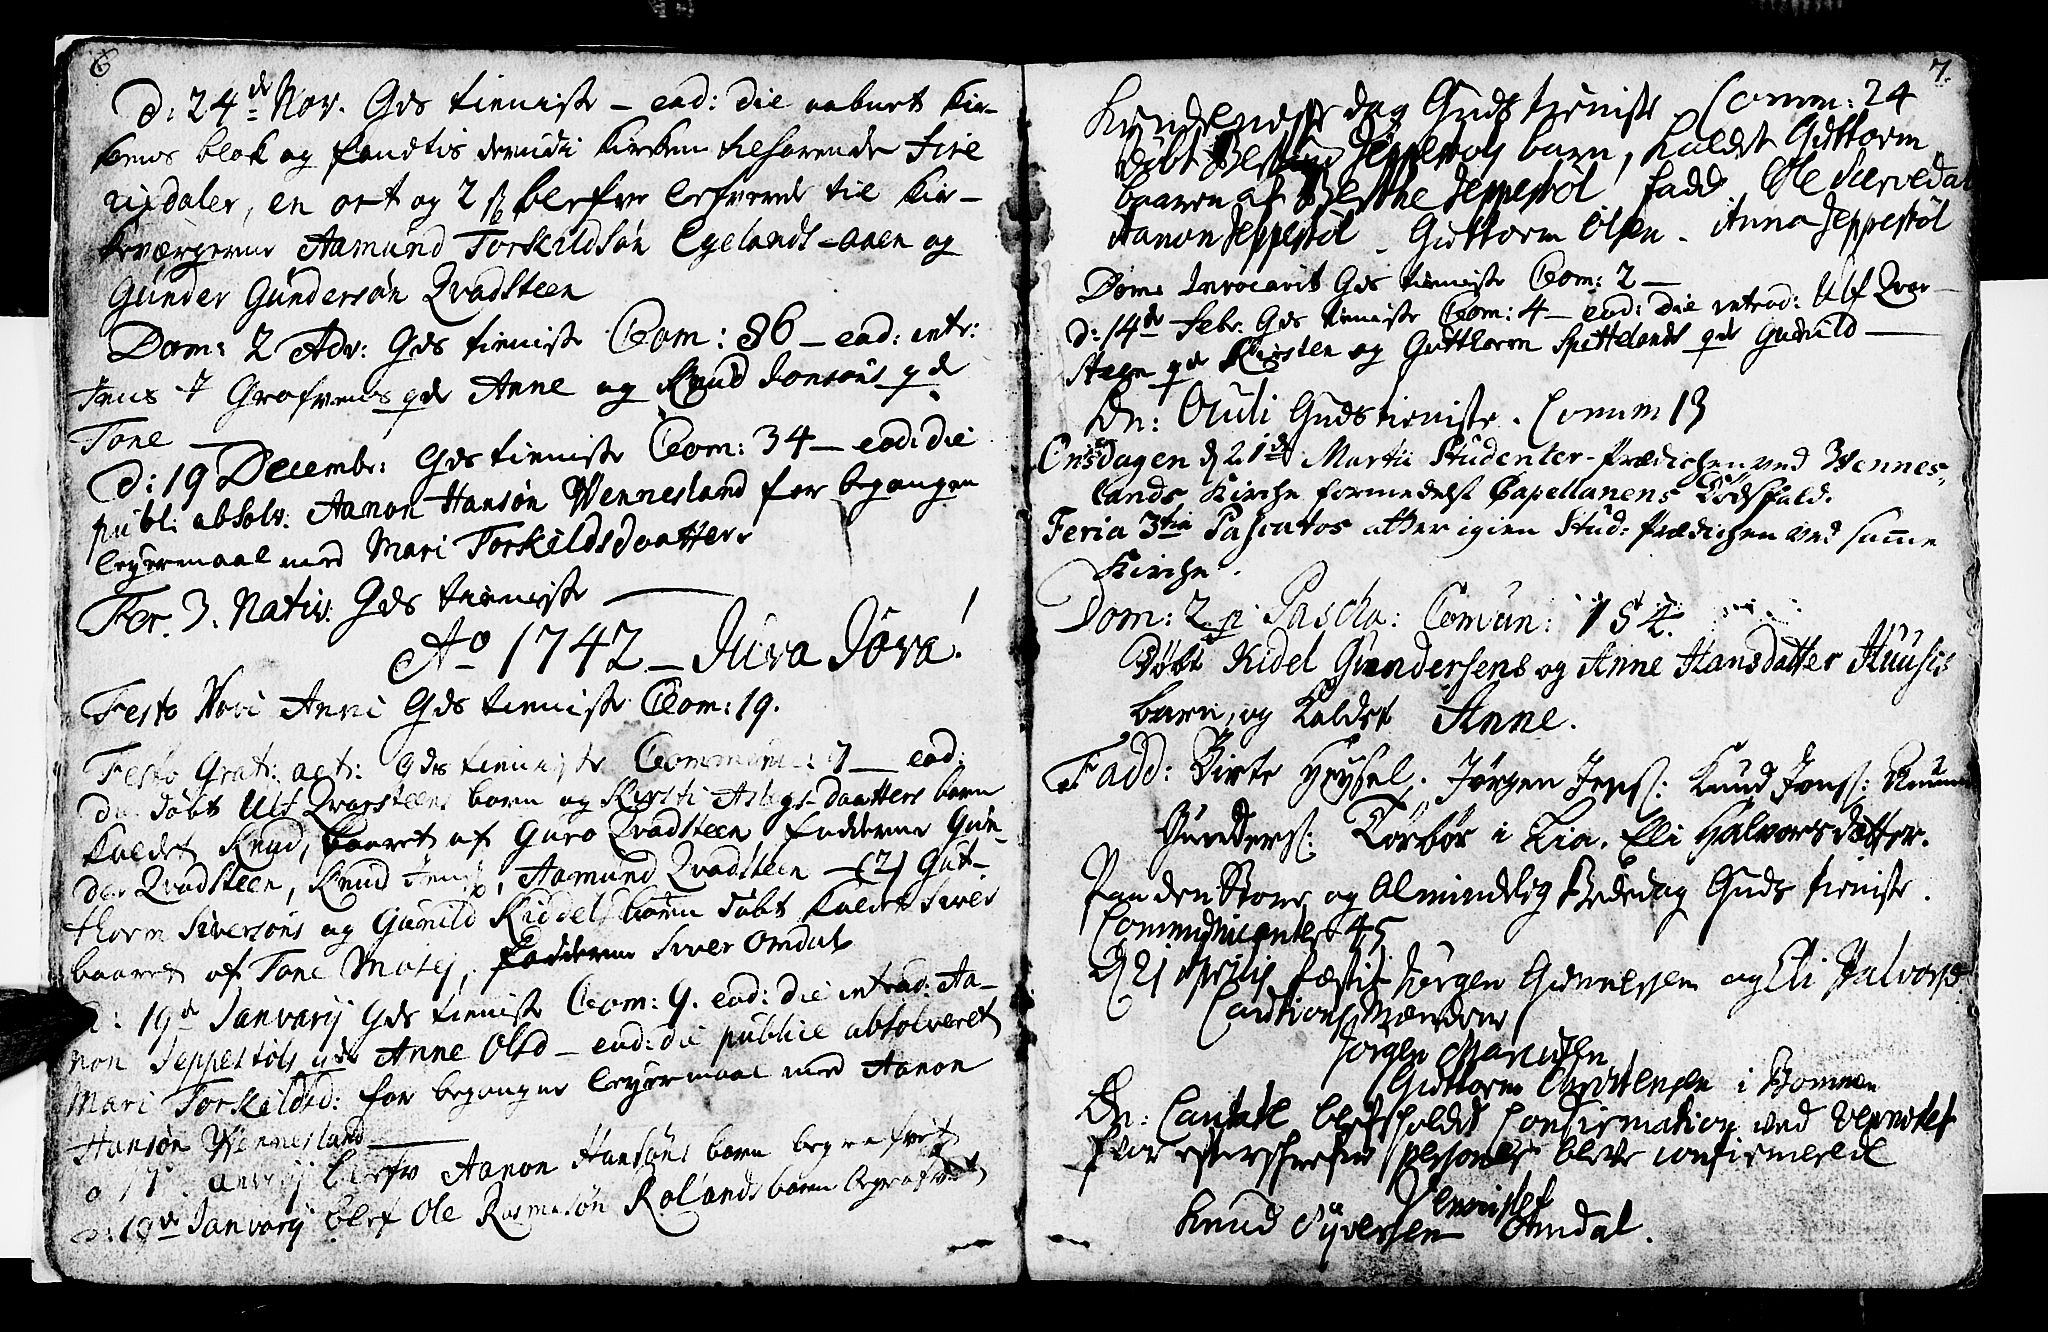 6
d: 24de Nov. Gds tieniste – ead: die aabnet Kir-
kens blok og fandtis derudi Kirken tilhørende fire
rixdaler, en ort og 2 ß blefve lefverede til Kir-
keværgerne Aamund Torkildsøn Egelands-aaen og
Gunder Gundersøn Qvadsteen
Dom: 2 Adv: Gds tieniste Com: 86 – ead: intr:
Jens Grafvens qde Anne og Knud Jonsøns qde
Tone –
d: 19 Decembr: Gds tieniste Com: 34 – ead: die
publ: absolv. Aanon Hansøn Wennesland for begangen
leyermaal med Mari Torkildsdaatter.
Fer. 3. Nativ: Gds tieniste –
Ao 1742 – Juva Jova!
Festo Novi Anni Gds tieniste Com: 19.
Festo Grat: act: Gds tieniste Communi: 7 – ead:
die døbt Ulf Qvarsteens barn og Kirsti Aslags-daatters barn
kaldet Knud, baaret af Guro Qvadsteen fadderne Gun-
der Qvadsteen, Knud Jens, Aamund Qvadsteen – (2) Gut-
thorm Siversøns og Gunild Kiddels barn døbt kaldet Siver
baaret af Tone Mosej, fadderne Siver Omdal
d: 19de Janvarij Gds tieniste Com: 9. ead: die introd: Aa-
non Jeppestøls qde Anne Olsd – ead: die publice absolveret
Mari Torkildsd: for begangne leyermaal med Aanon
Hansøn Wennesland –
Janvarij blefv Aanon Hansøns barn begrafvet
d: 19de Janvarij blef Ole Rasmusøn Rolands barn begrafvet
7.
Kyndelmisse dag Guds tieniste Comm: 24
døbt Jeppestøls barn, kaldet Guttorm
baaren af Berthe Jeppestøl fadd Ole Skervedal
Aanon Jeppestøl – Guttorm Olsen – Anna Jeppestøl
Dom: Invocavit Gds tieniste Com: 2 –
d: 14de Febr. Gds tieniste Com: 4 – ead: die introd: Ulf Qvar-
steen qde Kirsten og Gutthorm Spittelands qde Gunild –
Dn: Oculi Guds tieniste. Comm 13
Onsdagen d 21de Martii Studenter-Prædichen ved Wennes-
lands Kirche formedelst Capellanens Dødsfald.
Feria 3tia Paschatos atter igien Stud: Prædichen ved samme
Kirche.
Dom: 2 p: Pascha: Comun: 154.
Døbt Kidel Gundersens og Anne Hansdatter Huuses
barn, og kaldet Anne.
Fadd: Birte Heysel, Jørgen Jens: Knud Jons:
Gunders: Torbør i Lia. Elli Halvorsdatter.
Paa den Store og Almindelig Bededag Guds tieniste.
Communicanter 45
d 21 Aprilis fæstet Jørgen Gunnersen og Eli Halvorsd
Cautions Mændene
Jorgen
Guttorm Christensen i
Dn: Cantate blef holdet Confirmation ved
hvor efterschrefne personer bleve confirmerede
Knud Syversen Omdal.